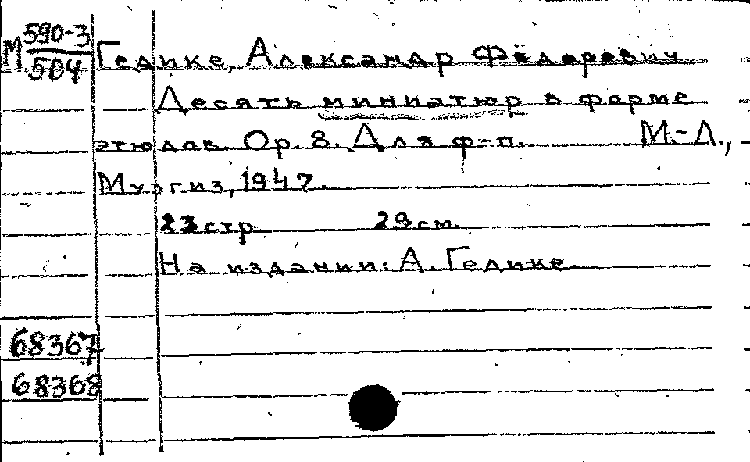 М 590-3
504
Гедике, Александр Фёдорович
Десять миниатюр в форме
этюдов. Ор. 8. Для ф-п. М.-Л.,
Музгиз, 1947.
23 стр. 29 см.
На издании: А. Гедике
68367
68368